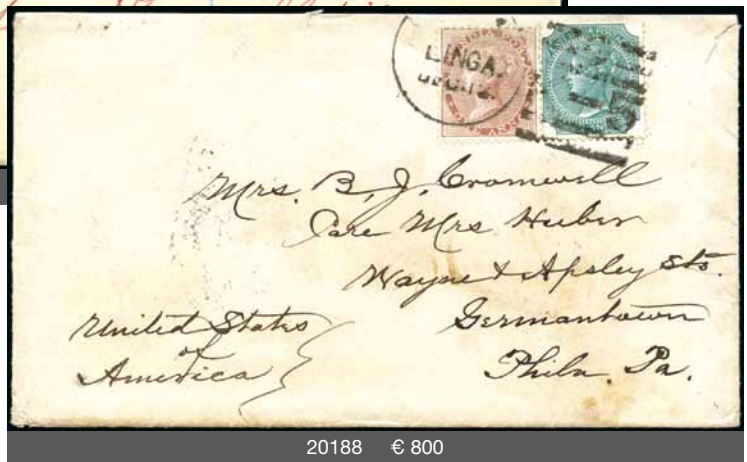 LINGA.
Mrs. B. J. Cromwell
Care Mrs Huber
Wayne & Apsley Sts.
Germantown
Phila. Pa.
United States
of
America
20188 € 800